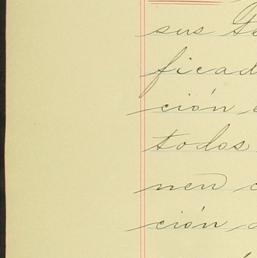 sus
ficad
ción
todos
nen
ción